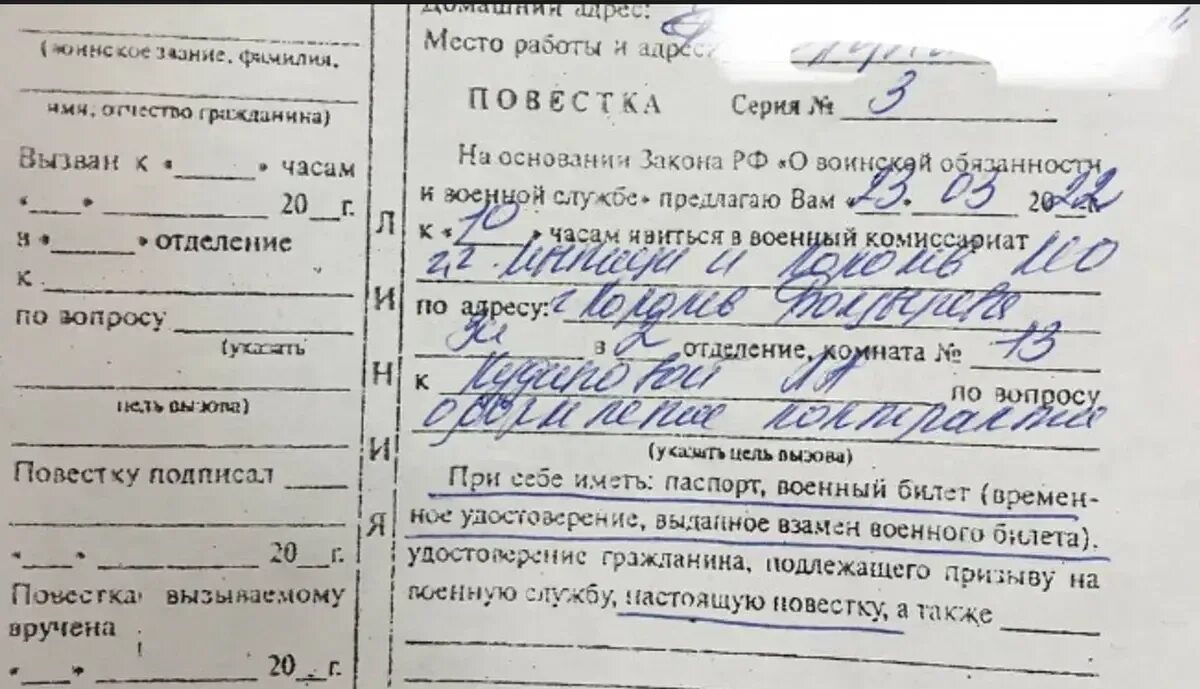 (воинское звание, фамилия,
имя, отчество гражданина)
Вызван к « » часам
« » 20 г.
в « » отделение
к
по вопросу
(указать
цель вызова)
Повестку подписал
« » 20 г.
Повестка вызываемому
вручена
« » 20 г.
ЛИНИЯ
Домашний адрес:
Место работы и адрес:
ПОВЕСТКА Серия № 3
На основании Закона РФ «О воинской обязанности
и военной службе» предлагаю Вам «23» 03 2022 г.
к «10» часам явиться в военный комиссариат
г.г. Мытищи и Королёв МО
по адресу: г Королёв Болдырева
в 2 отделение, комната № 13
к ЛА по вопросу
оформление контракта
(указать цель вызова)
При себе иметь: паспорт, военный билет (времен-
ное удостоверение, выданное взамен военного билета).
удостоверение гражданина, подлежащего призыву на
военную службу, настоящую повестку, а также